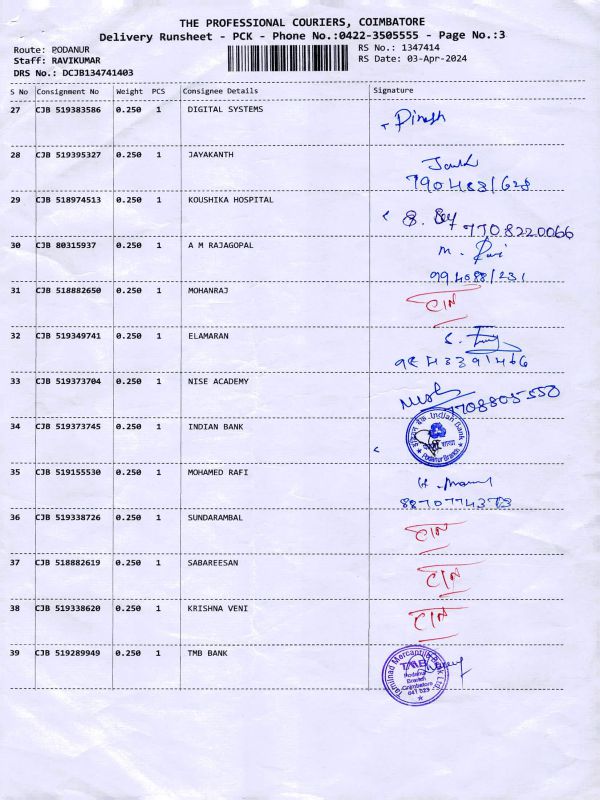 THE PROFESSIONAL COURIERS, COIMBATORE
Delivery Runsheet - PCK - Phone No.:0422-3505555 - Page No.:3
Route: PODANUR RS No.: 1347414
Staff: RAVIKUMAR RS Date: 03-Apr-2024
DRS No.: DCJB134741403
S No Consignment No Weight PCS Consignee Details Signature
27 CJB 519383586 0.250 1 DIGITAL SYSTEMS
Dinesh
28 CJB 519395327 0.250 1 JAYAKANTH
29 CJB 518974513 0.250 1 KOUSHIKA HOSPITAL
7708220066
30 CJB 80315937 0.250 1 A M RAJAGOPAL
31 CJB 518882650 0.250 1 MOHANRAJ
32 CJB 519349741 0.250 1 ELAMARAN
33 CJB 519373704 0.250 1 NISE ACADEMY
7708805550
34 CJB 519373745 0.250 1 INDIAN BANK
Indian Bank
Podanur Branch
35 CJB 519155530 0.250 1 MOHAMED RAFI
36 CJB 519338726 0.250 1 SUNDARAMBAL
37 CJB 518882619 0.250 1 SABAREESAN
38 CJB 519338620 0.250 1 KRISHNA VENI
39 CJB 519289949 0.250 1 TMB BANK
TMB
Podanur
Branch
Coimbatore
641 023